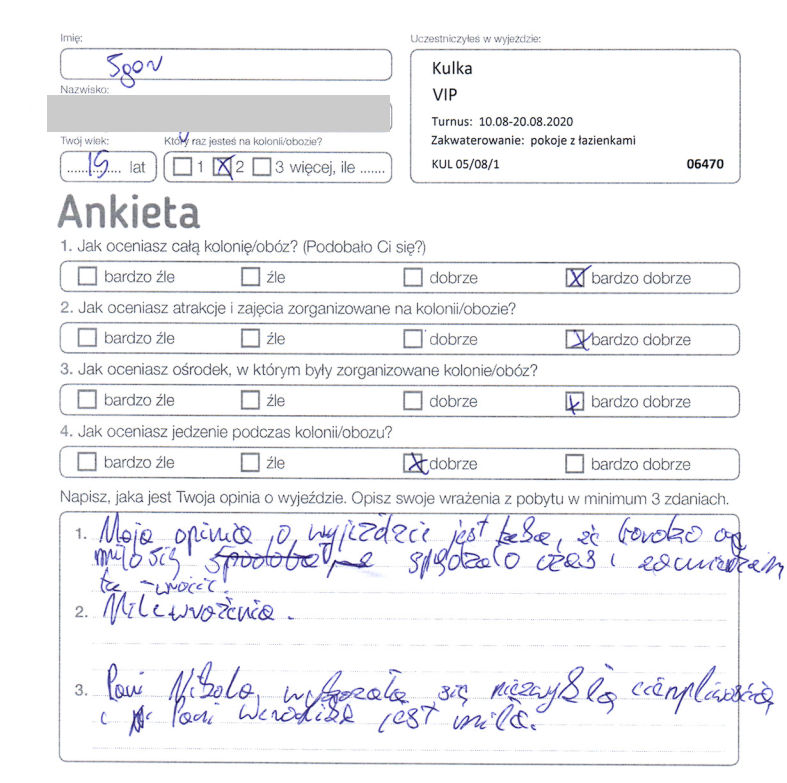 Imię:
Igor
Nazwisko:
Twój wiek:
15 lat
Który raz jesteś na kolonii/obozie?
1 X 2 3 więcej, ile .......
Uczestniczyłeś w wyjeździe:
Kulka
VIP
Turnus: 10.08-20.08.2020
Zakwaterowanie: pokoje z łazienkami
KUL 05/08/1 06470
Ankieta
1. Jak oceniasz całą kolonię/obóz? (Podobało Ci się?)
bardzo źle źle dobrze X bardzo dobrze
2. Jak oceniasz atrakcje i zajęcia zorganizowane na kolonii/obozie?
bardzo źle źle dobrze X bardzo dobrze
3. Jak oceniasz ośrodek, w którym były zorganizowane kolonie/obóz?
bardzo źle źle dobrze X bardzo dobrze
4. Jak oceniasz jedzenie podczas kolonii/obozu?
bardzo źle źle X dobrze bardzo dobrze
Napisz, jaka jest Twoja opinia o wyjeździe. Opisz swoje wrażenia z pobytu w minimum 3 zdaniach.
1. Moja opinia o wyjeździe jest że bardzo
miło się spędzało czas i
tu wrócić.
2. Miłe wrażenia.
3. Pani Nikola wykazała się niezwykłą cierpliwością
i Pani jest miła.